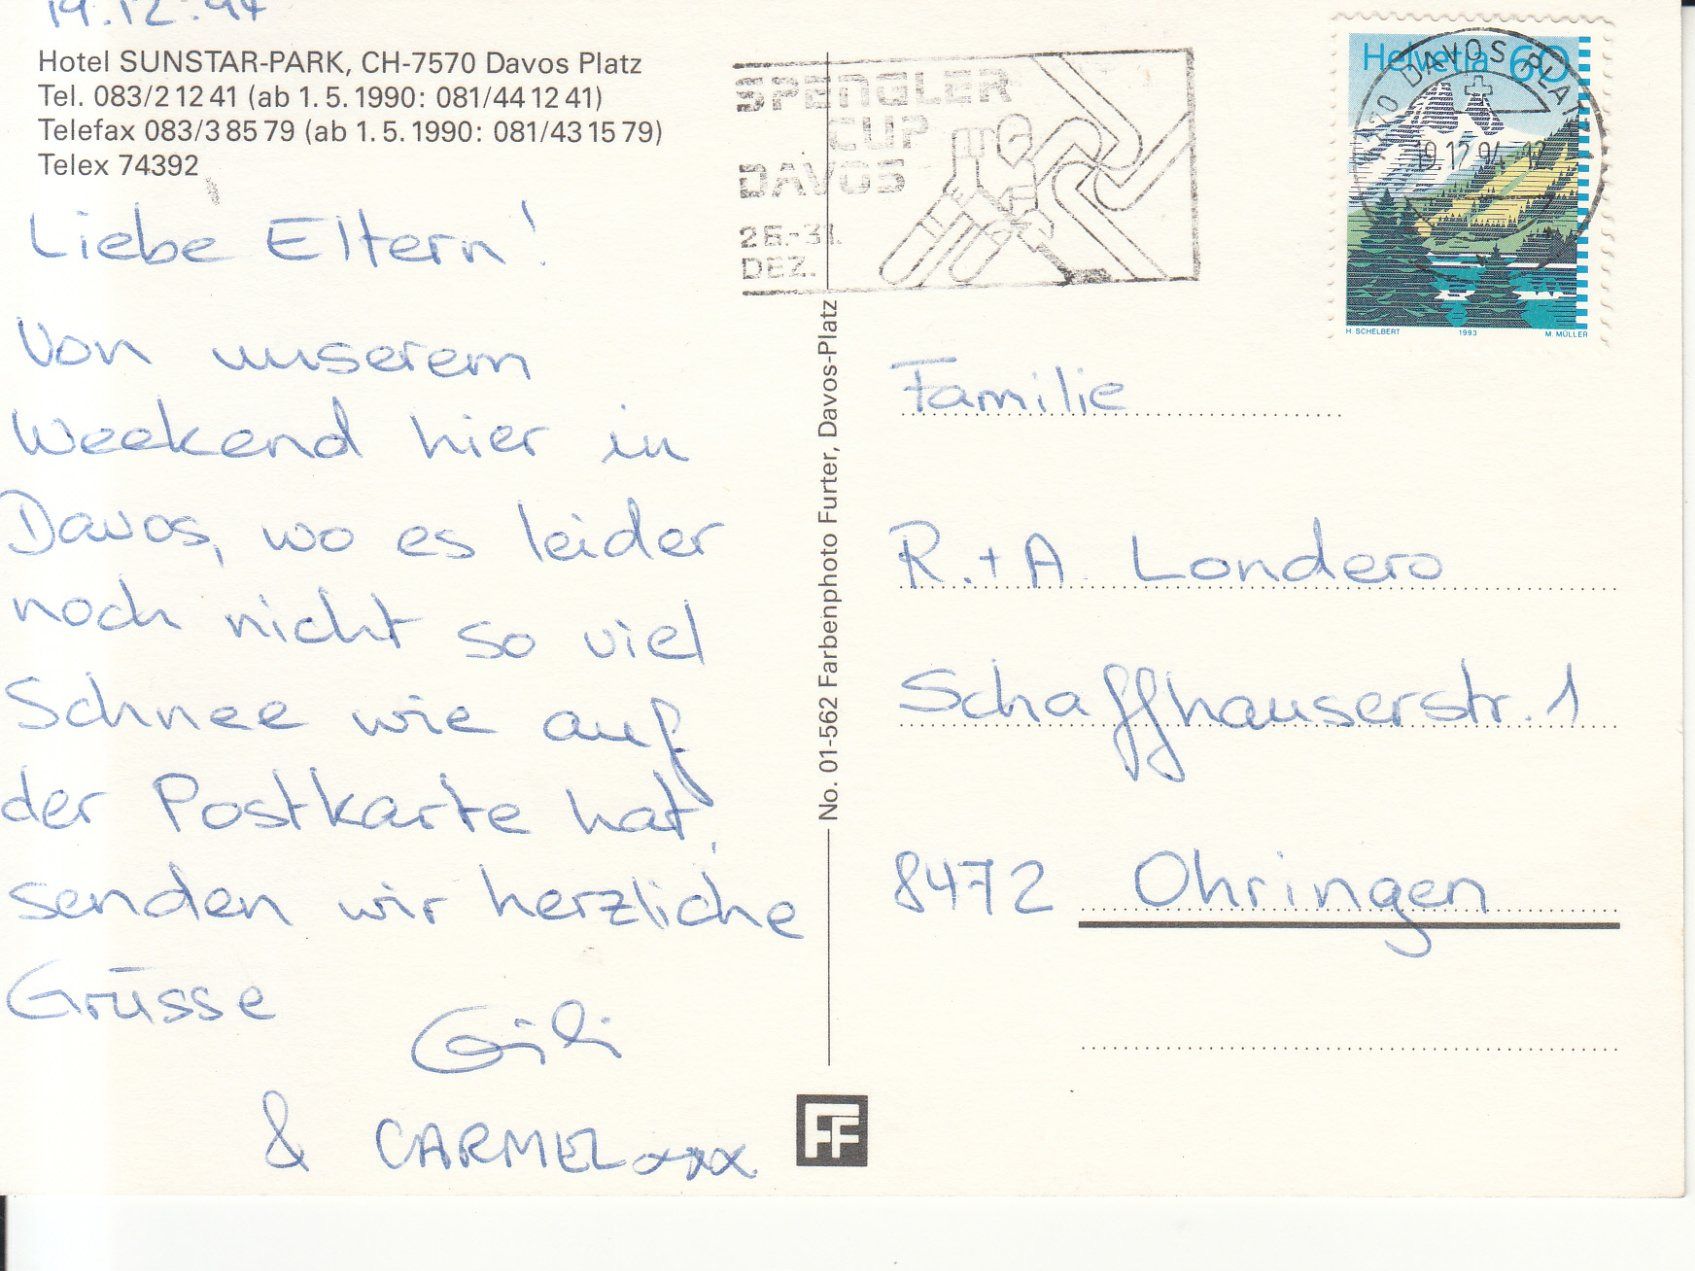 19.12.94
Hotel SUNSTAR-PARK, CH-7570 Davos Platz
Tel. 083/2 12 41 (ab 1. 5. 1990: 081/44 12 41)
Telefax 083/3 85 79 (ab 1. 5. 1990: 081/43 15 79)
Telex 74392
Liebe Eltern!
Von unserem
Weekend hier in
Davos, wo es leider
noch nicht so viel
Schnee wie auf
der Postkarte hat,
senden wir herzliche
Grüsse
& CARMEL xxx
No. 01-562 Farbenphoto Furter, Davos-Platz
FF
SPENGLER
CUP
DAVOS
26.-31.
DEZ.
Helvetia 60
DAVOS PLATZ
19.12.94-12
H. SCHELBERT 1993 M. MÜLLER
Familie
R.+A. Londero
Schaffhauserstr. 1
8472 Ohringen